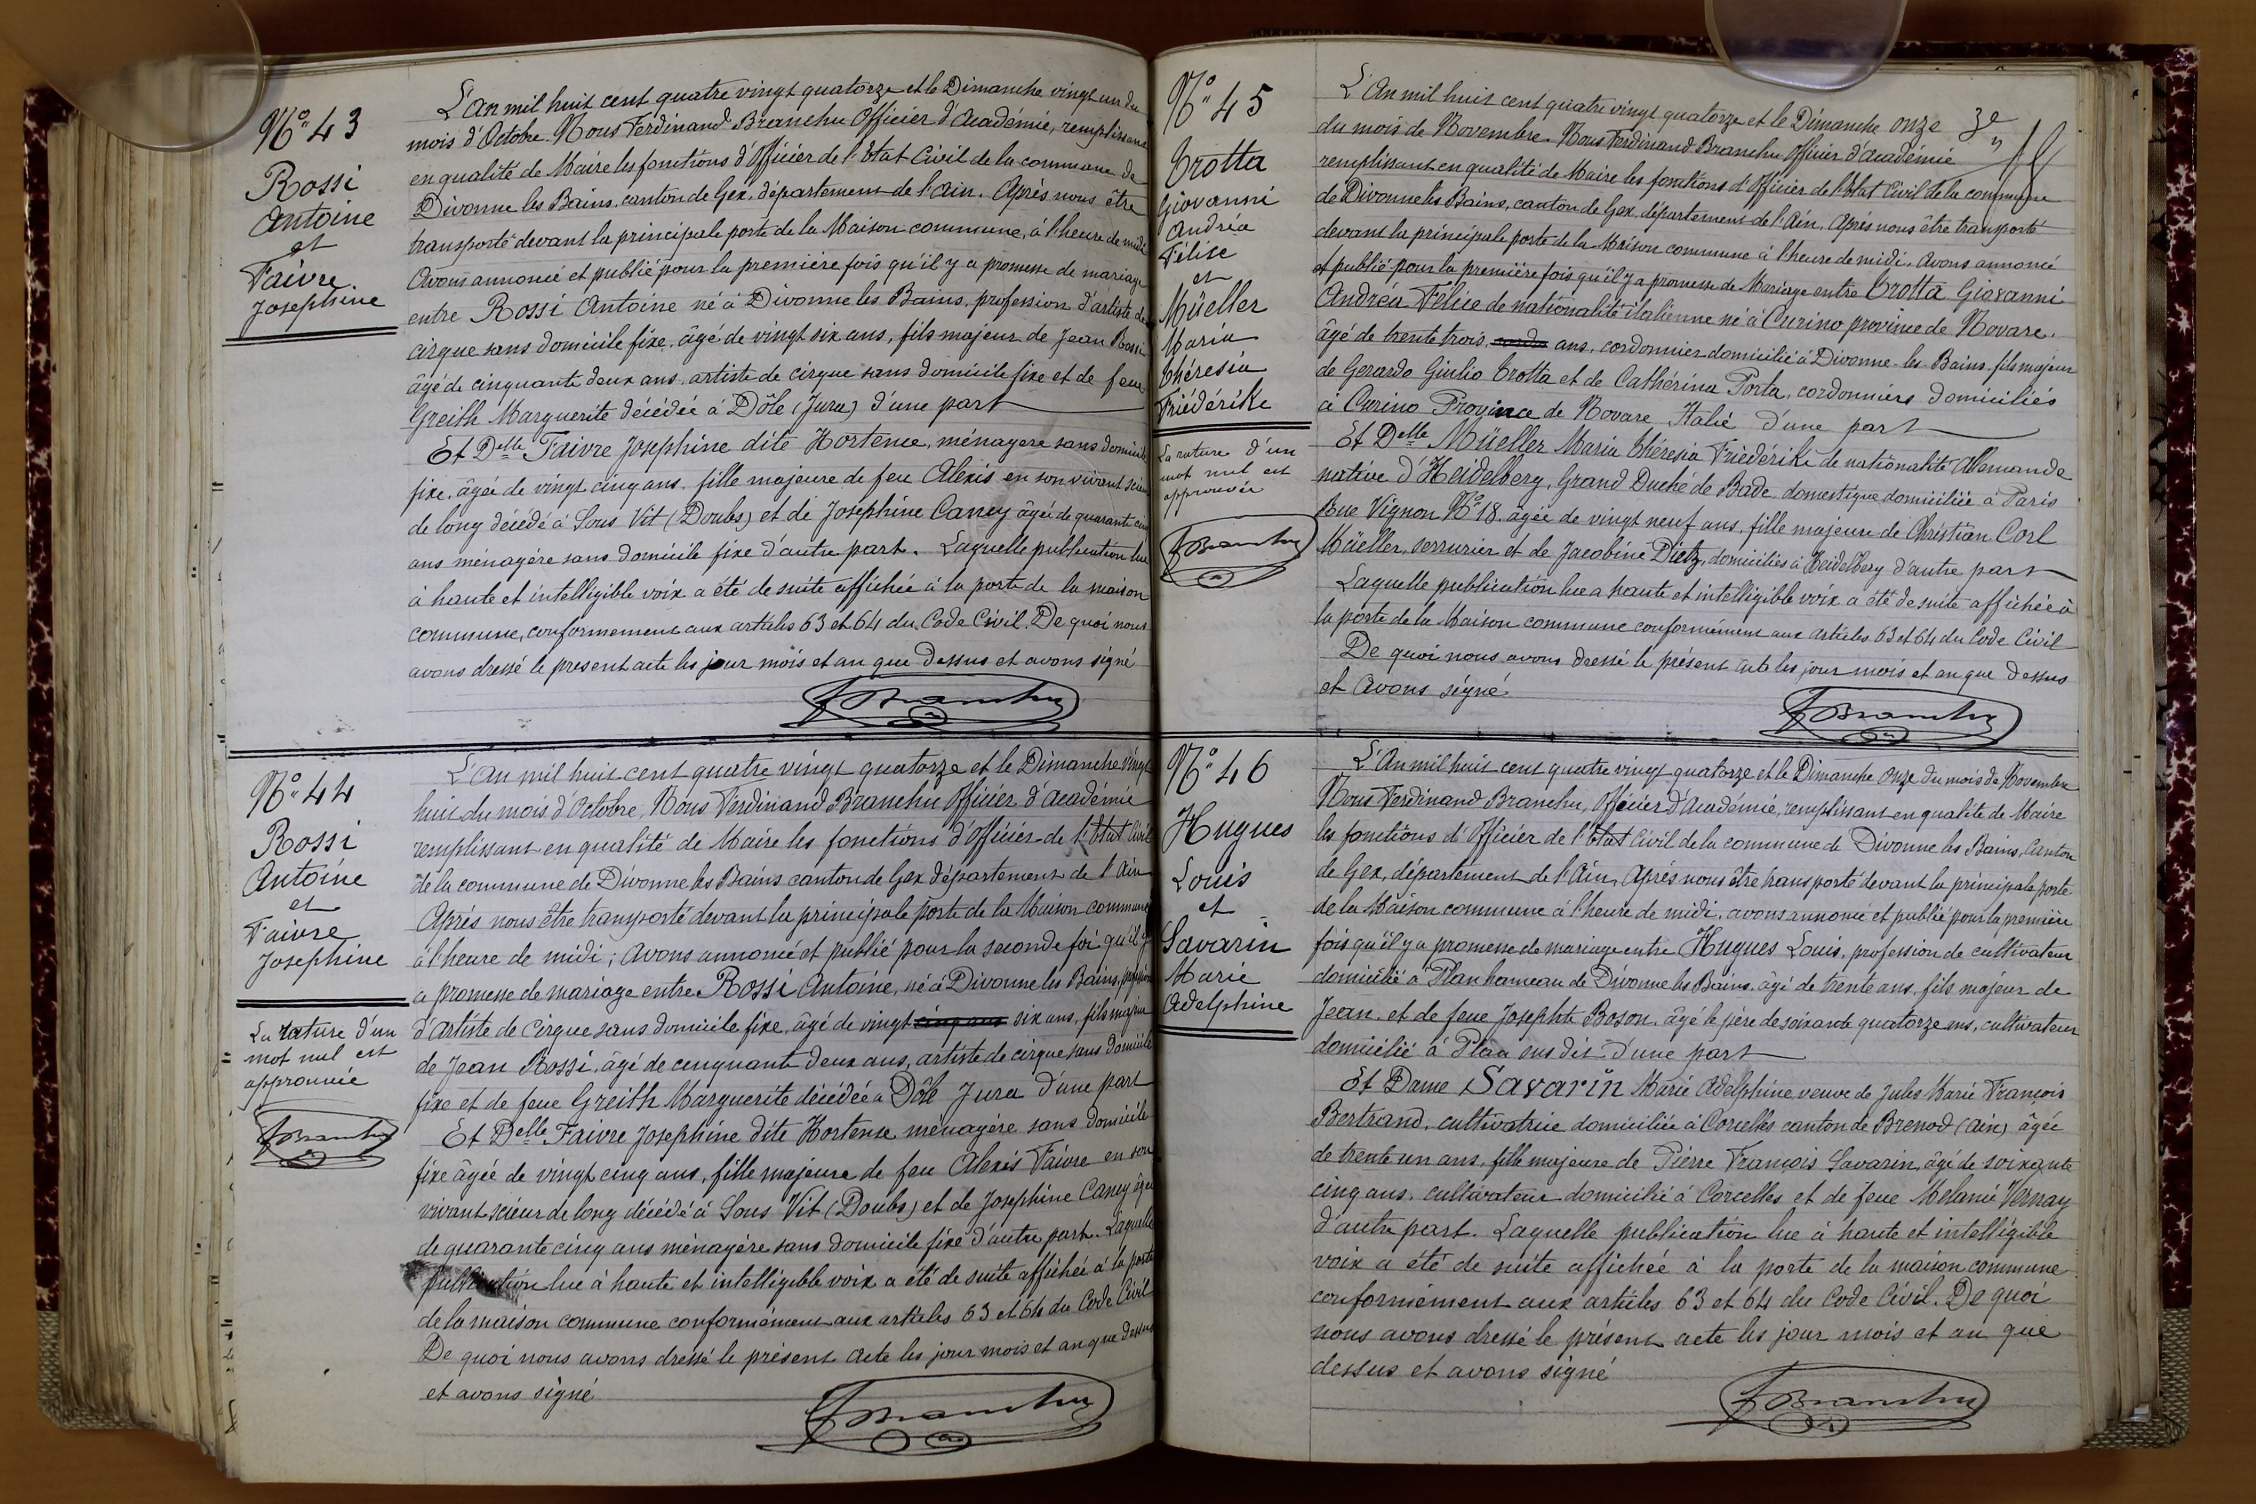 Nº 43
Rossi
Antoine
et
Faivre
Josephine
L'an mil huit cent quatre vingt quatorze et le Dimanche vingt un du
mois d'Octobre. Nous Ferdinand Branchu Officier d'Académie, remplissant
en qualité de Maire les fonctions d'Officier de l'Etat Civil de la commune de
Divonne les Bains, canton de Gex, département de l'Ain. Après nous être
transporté devant la principale porte de la Maison commune, à l'heure de midi
Avons annoncé et publié pour la première fois qu'il y a promesse de mariage
entre Rossi Antoine né à Divonne les Bains, profession d'artiste de
cirque sans domicile fixe, âgé de vingt six ans, fils majeur de Jean Rossi
âgé de cinquante deux ans artiste de cirque sans domicile fixe et de feue
Greith Marguerite décédée à Dôle (Jura) d'une part
Et Delle Faivre Josephine dite Hortense, ménagère sans domicile
fixe, âgée de vingt cinq ans, fille majeure de feu Alexis en son vivant scieur
de long décédé à Sous Vit (Doubs) et de Josephine Caney âgée de quarante cinq
ans ménagère sans domicile fixe d'autre part. Laquelle publication lue
à haute et intelligible voix a été de suite affichée à la porte de la maison
commune, conformement aux articles 63 et 64 du Code Civil. De quoi nous
avons dressé le present acte les jour mois et an que dessus et avons signé
F Branchu
Nº 44
Rossi
Antoine
et
Faivre
Josephine
La rature d'un
mot nul est
approuvée
F Branchu
L'an mil huit cent quatre vingt quatorze et le Dimanche vingt
huit du mois d'Octobre, Nous Ferdinand Branchu Officier d'Académie
remplissant en qualité de Maire les fonctions d'officier de l'Etat Civil
de la commune de Divonne les Bains canton de Gex département de l'Ain
Après nous être transporté devant la principale porte de la Maison commune
à l'heure de midi; Avons annoncé et publié pour la seconde foi qu'il y
a promesse de mariage entre Rossi Antoine, né à Divonne les Bains, profession
d'artiste de cirque sans domicile fixe, âgé de vingt cinq ans six ans, fils majeur
de Jean Rossi, âgé de cinquante deux ans, artiste de cirque sans domicile
fixe et de feue Greith Marguerite décédée à Dôle Jura d'une part
Et Delle Faivre Josephine dite Hortense ménagère sans domicile
fixe âgée de vingt cinq ans, fille majeure de feu Alexis Faivre en son
vivant scieur de long décédé à Sous Vit (Doubs) et de Josephine Caney âgée
de quarante cinq ans ménagère sans domicile fixe d'autre part. Laquelle
publication lue à haute et intelligible voix a été de suite affichée à la porte
de la maison commune conformément aux articles 63 et 64 du Code Civil
De quoi nous avons dressé le présent acte les jour mois et an que dessus
et avons signé
F Branchu
Nº 45
Crotta
Giovanni
Andréa
Félice
et
Müeller
Maria
Thérésia
Friédérike
La rature d'un
mot nul est
approuvée
F Branchu
L'An mil huit cent quatre vingt quatorze et le Dimanche onze
du mois de Novembre. Nous Ferdinand Branchu Officier d'académie
remplissant en qualité de Maire les fonctions d'Officier de l'Etat Civil de la commune
de Divonne les Bains, canton de Gex, département de l'Ain, Après nous être transporté
devant la principale porte de la Maison commune à l'heure de midi. Avons annoncé
et publié pour la première fois qu'il y a promesse de Mariage entre Crotta Giovanni
Andréa Félice de nationalité italienne né à Curino province de Novare.
âgé de trente trois, ans, cordonnier domicilié à Divonne-les-Bains fils majeur
de Gerardo Giulio Crotta et de Cathérina Porta, cordonniers domiciliés
à Curino Province de Novare, Italie d'une part
Et Delle Müeller Maria Thérésia Friédérike de nationalité Allemande
native d'Heidelberg, Grand Duché de Bade domestique domiciliée à Paris
Rue Vignon Nº 18, âgée de vingt neuf ans, fille majeure de Christian Corl
Müeller, serrurier et de Jacobine Dietz, domiciliés à Heidelberg d'autre part
Laquelle publication lue à haute et intelligible voix a été de suite affichée à
la porte de la Maison commune conformément aux articles 63 et 64 du Code Civil
De quoi nous avons dressé le présent acte les jour mois et an que dessus
et avons signé
F Branchu
Nº 46
Hugues
Louis
et
Savarin
Marie
Adelphine
L'An mil huit cent quatre vingt quatorze et le Dimanche onze du mois de Novembre
Nous Ferdinand Branchu, Officier d'Académie, remplissant en qualité de Maire
les fonctions d'Officier de l'Etat Civil de la commune de Divonne les Bains, Canton
de Gex, département de l'Ain, Après nous être transporté devant la principale porte
de la Maison commune à l'heure de midi, avons annoncé et publié pour la première
fois qu'il y a promesse de mariage entre Hugues Louis, profession de cultivateur
domicilié à Plan hameau de Divonne les Bains, âgé de trente ans, fils majeur de
Jean, et de feue Josephte Boson, âgé le père de soixante quatorze ans, cultivateur
domicilié à Plan sus dit d'une part
Et Dame Savarin Marie Adelphine veuve de Jules Marie François
Bertrand, cultivatrice domiciliée à Corcelles canton de Brenod (Ain) âgée
de trente un ans, fille majeure de Pierre François Savarin, âgé de soixante
cinq ans, cultivateur domicilié à Corcelles et de feue Melanie Vernay
d'autre part. Laquelle publication lue à haute et intelligible
voix a été de suite affichée à la porte de la maison commune
conformément aux articles 63 et 64 du Code Civil. De quoi
nous avons dressé le présent acte les jour mois et an que
dessus et avons signé
F Branchu